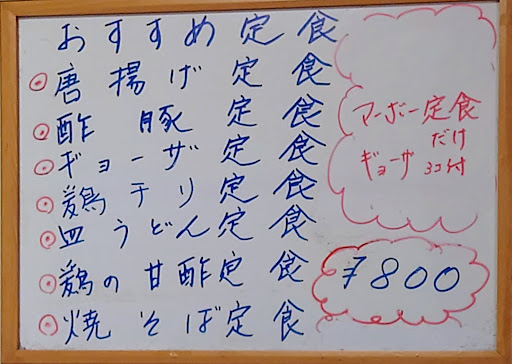 おすすめ定食
◎唐揚げ定食
◎酢豚定食
◎ギョーザ定食
◎鶏チリ定食
◎皿うどん定食
◎鶏の甘酢定食
◎焼そば定食
マーボー定食
だけ
ギョーザ3コ付
¥800